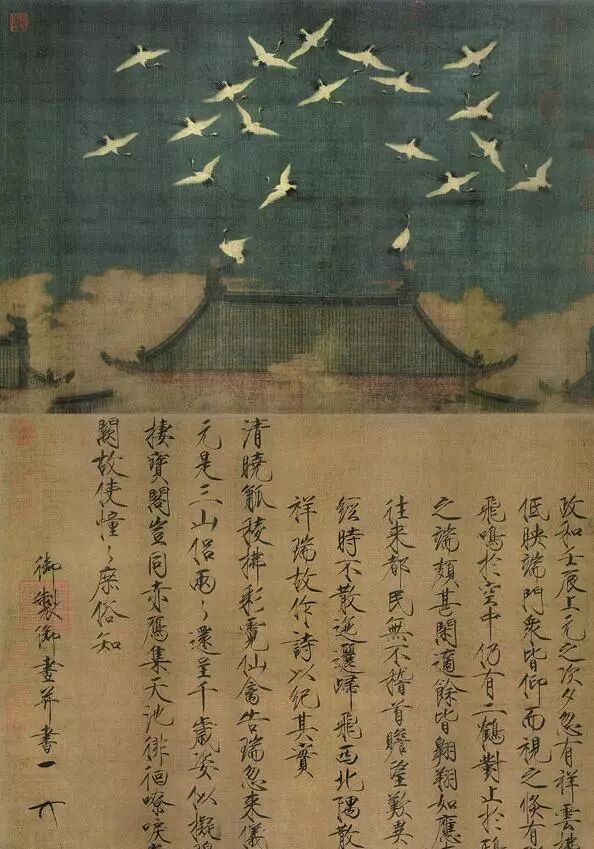 政和壬辰上元之次夕忽有祥雲拂
低映端門衆皆仰而視之倏有
飛鳴於空中仍有二鶴對止於鴟
之端頗甚閑適餘皆翱翔如應
往来都民無不稽首瞻望歎異
經時不散迤邐歸飛西北隅散
祥瑞故作詩以紀其實
清曉觚稜拂彩霓仙禽告瑞忽来儀
元是三山侶兩々還呈千歲姿似擬碧
棲寶閣豈同赤鴈集天池徘徊嘹唳
闕故使憧々庶俗知
御製御畫并書